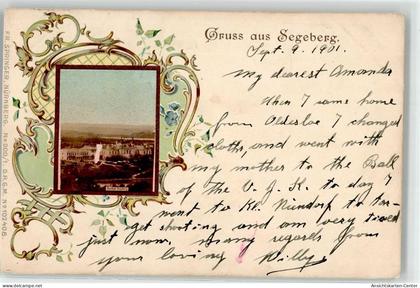 Gruss aus Segeberg.
Sept. 9. 1901.
My dearest Amanda
When I came home
from Oldesloe I changed
cloths, and went with
my mother to the Ball
of the V. J. K. to day I
went to Kl. Niendorf to tar-
get shooting and am very tired
just now, many regards from
your loving Willy
FR. SPRINGER, NÜRNBERG.
www.ansichtskarten-center.de
Ansichtskarten-Center